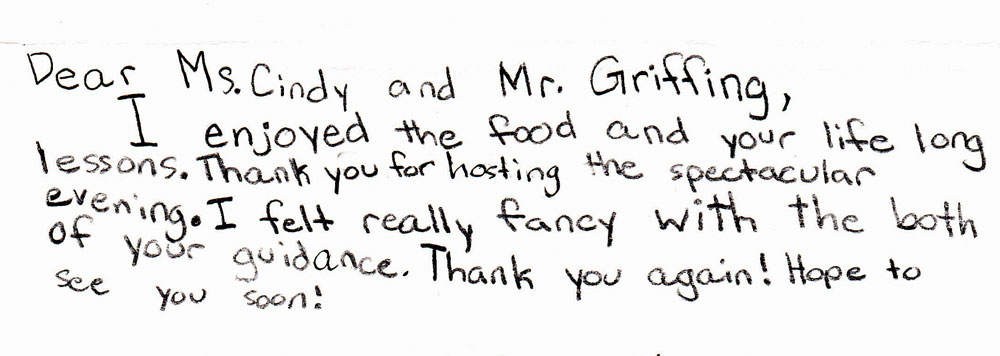 Dear Ms. Cindy and Mr. Griffing,
I enjoyed the food and your life long
lessons. Thank you for hosting the spectacular
evening. I felt really fancy with the both
of your guidance. Thank you again! Hope to
see you soon!